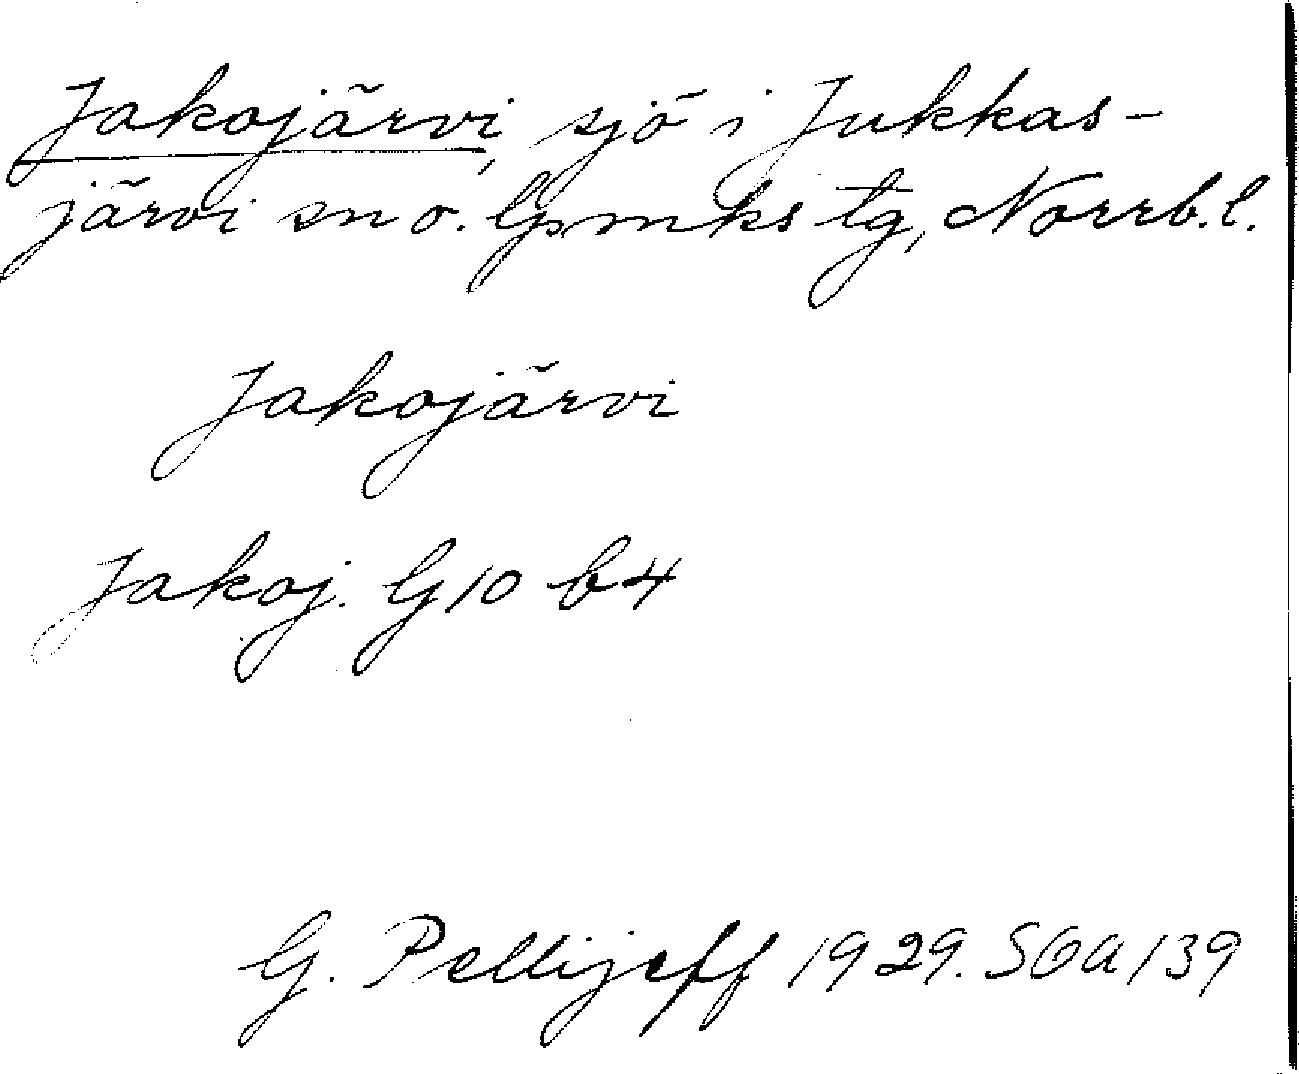 Jakojärvi, sjö i Jukkas-
järvi sn o. lpmks tg, Norrb. l.
Jakojärvi
Jakoj. G 10 b 4
G. Pellijeff 1929. SOA 139